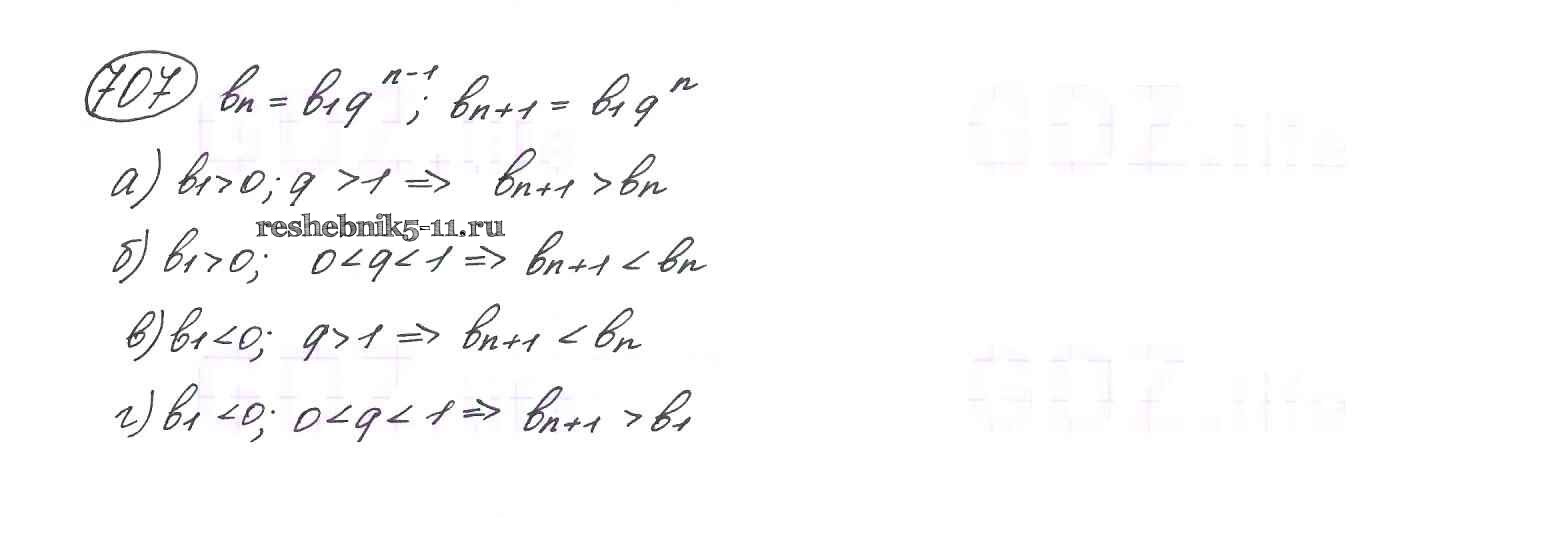 707 bₙ = b₁qⁿ⁻¹; bₙ₊₁ = b₁qⁿ
а) b₁>0; q >1 => bₙ₊₁ >bₙ
reshebnik5-11.ru
б) b₁>0; 0<q<1 => bₙ₊₁ < bₙ
в) b₁<0; q>1 => bₙ₊₁ < bₙ
г) b₁<0; 0<q<1 => bₙ₊₁ >b₁